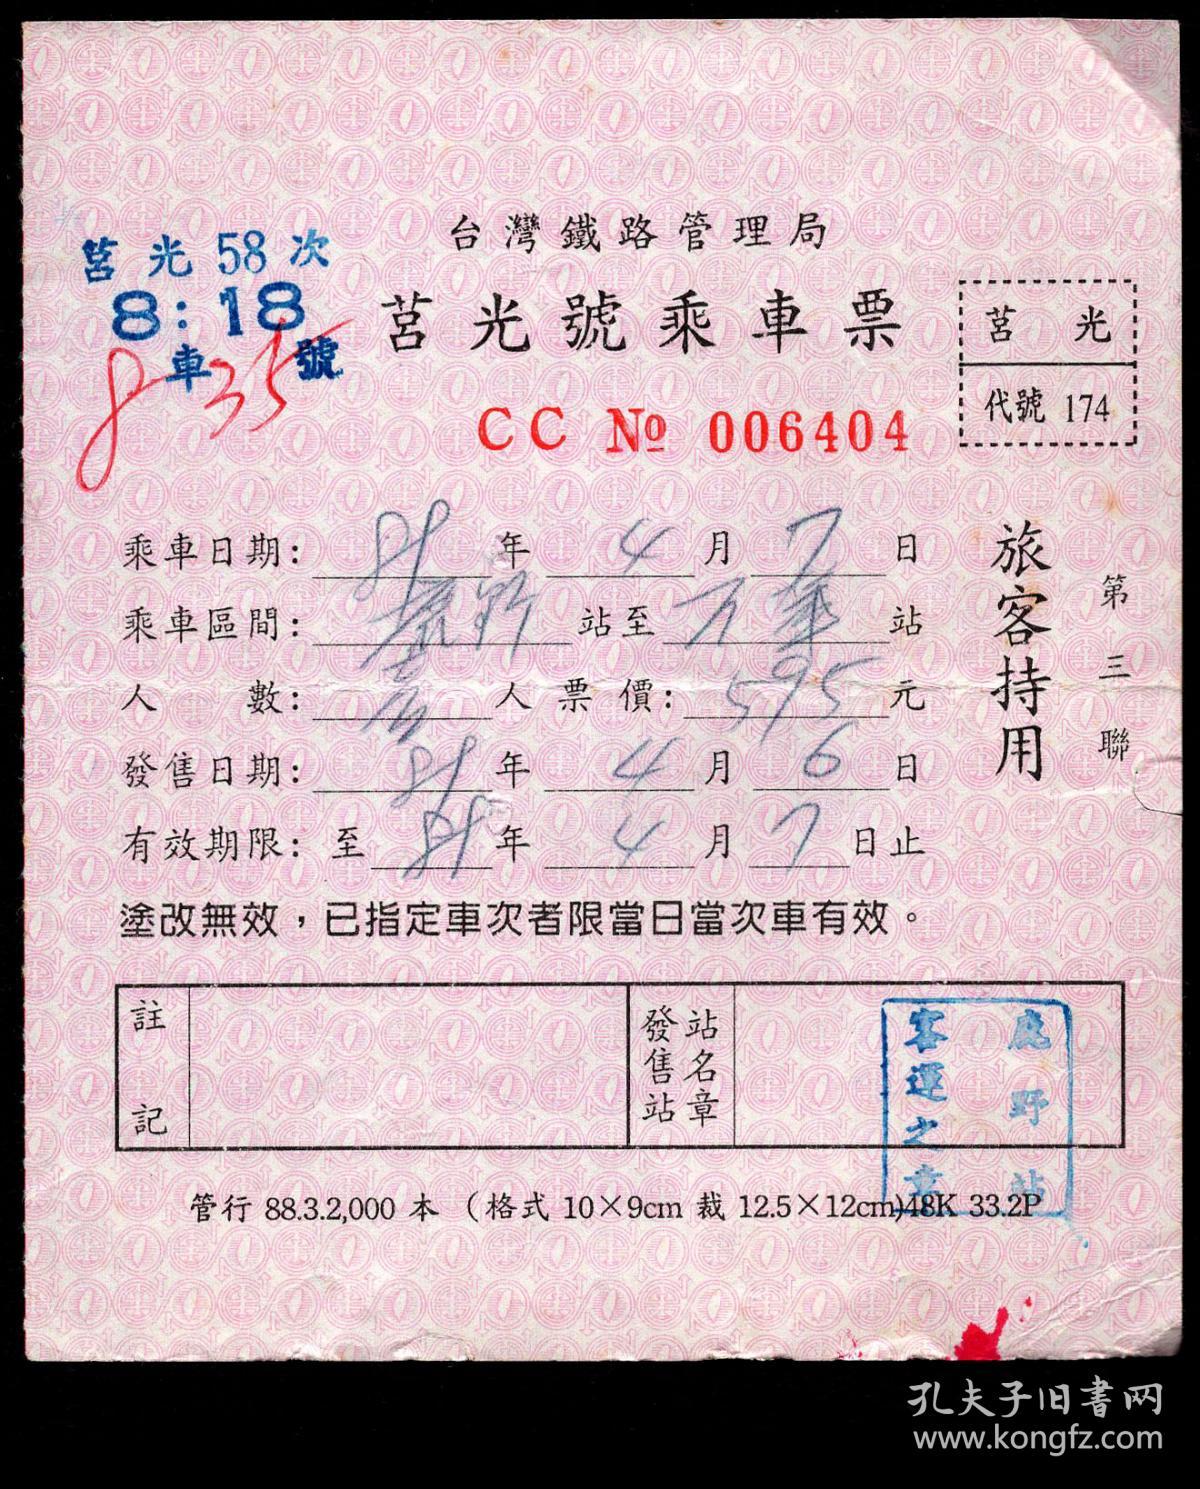 台灣鐵路管理局
莒光58次
8:18
8車35號
莒光號乘車票
莒光
代號 174
CC № 006404
乘車日期: 91年4月7日
乘車區間: 鹿野站至萬華站
人數: 壹人 票價: 595元
發售日期: 91年4月6日
有效期限: 至91年4月7日止
旅客持用
第三聯
塗改無效，已指定車次者限當日當次車有效。
註記
發售站
站名章
鹿野站
客運之章
管行 88.3.2,000 本 (格式 10×9cm 裁 12.5×12cm)48K 33.2P
孔夫子旧书网
www.kongfz.com